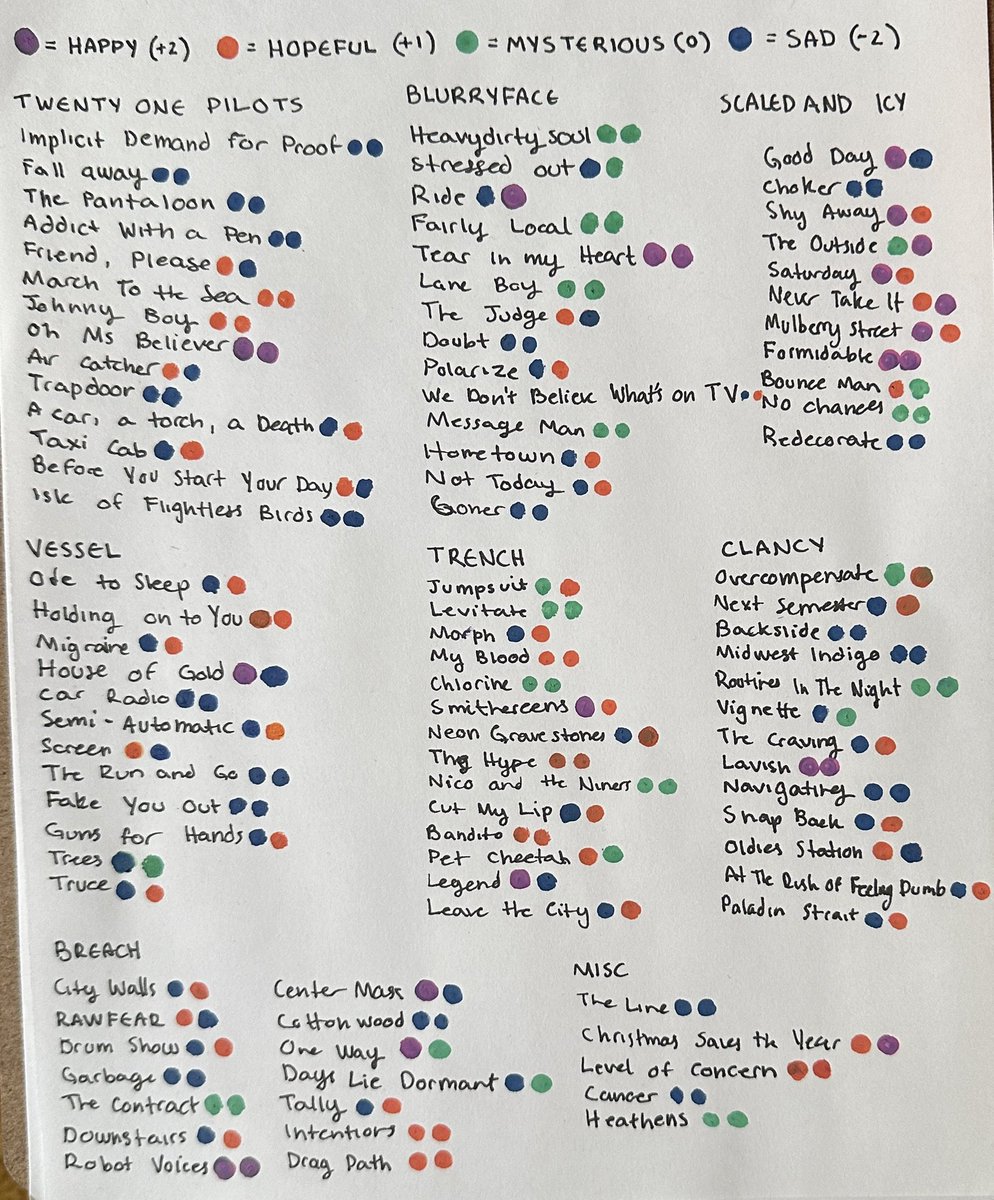 = HAPPY (+2) = HOPEFUL (+1) = MYSTERIOUS (0) = SAD (-2)
TWENTY ONE PILOTS
Implicit Demand for Proof
Fall away
The Pantaloon
Addict With a Pen
Friend, Please
March To the Sea
Johnny Boy
Oh Ms Believer
Air Catcher
Trapdoor
A car, a torch, a Death
Taxi Cab
Before You Start Your Day
Isle of Flightless Birds
BLURRYFACE
Heavydirty soul
Stressed out
Ride
Fairly Local
Tear in my Heart
Lane Boy
The Judge
Doubt
Polarize
We Don't Believe What's on TV
Message Man
Hometown
Not Today
Goner
SCALED AND ICY
Good Day
Choker
Shy Away
The Outside
Saturday
Never Take It
Mulberry Street
Formidable
Bounce Man
No chances
Redecorate
VESSEL
Ode to Sleep
Holding on to You
Migraine
House of Gold
Car Radio
Semi-Automatic
Screen
The Run and Go
Fake You Out
Guns for Hands
Trees
Truce
TRENCH
Jumpsuit
Levitate
Morph
My Blood
Chlorine
Smithereens
Neon Gravestones
The Hype
Nico and the Niners
Cut My Lip
Bandito
Pet Cheetah
Legend
Leave the City
CLANCY
Overcompensate
Next Semester
Backslide
Midwest Indigo
Routines In The Night
Vignette
The Craving
Lavish
Navigating
Snap Back
Oldies Station
At The Rush of Feeling Dumb
Paladin Strait
BREACH
City Walls
RAWFEAR
Drum Show
Garbage
The Contract
Downstairs
Robot Voices
Center Mass
Cotton wood
One Way
Days Lie Dormant
Tally
Intentions
Drag Path
MISC
The Line
Christmas Saves the Year
Level of Concern
Cancer
Heathens